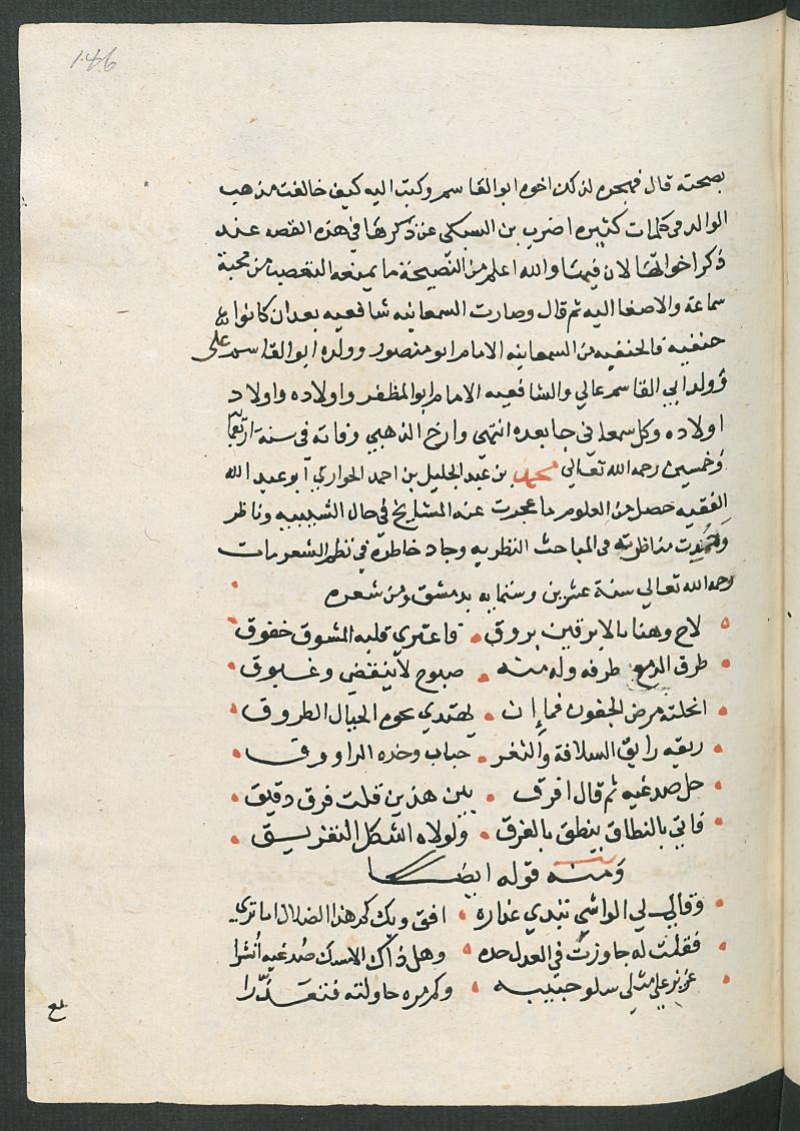 146
بصحته قال فهجره لذلك اخوه ابو القاسم وكتب اليه كيف خالفت مذهب
الوالد في كلمات كثيره اضرب بن السبكي عن ذكرها في هذه القصه عند
ذكر اخوالها لان فيها والله اعلم من النصيحة ما يمنعه التعصب من محبة
سماعه والاصغا اليه ثم قال وصارت السمعانيه شافعيه بعد ان كانوا
حنفيه فالحنفيه من السمعانيه الامام ابو منصور وولده ابو القاسم على
وولد ابي القاسم عالي والشافعيه الامام ابو المظفر واولاده واولاد
اولاده وكل سمعاني جا بعده انتهي وارخ الذهبي وفاته في سنة اربع
وخمسين رحمه الله تعالى محمد بن عبد الجليل بن احمد الخواري ابو عبد الله
الفقيه حصل من العلوم ما عجزت عنه المشايخ في حال الشبيبه وناظر
وحمدت مناظرته في المباحث النظريه وجاد خاطره في نظم الشعر مات
رحمه الله تعالى سنة عشرين وستمايه بدمشق ومن شعره
لاح وهنا بالابرقين بروق فاعترى قلبه المشوق خفوق
طرق الدمع طرفه وله منه صبوح لا ينقضي وغبوق
انحلته مرض الجفون فما إن يهتدي نحوه الخيال الطروق
ريقه رايق السلافة والثغر حباب وخده الراووق
حل صدغيه ثم قال افرق بين هذين قلت فرق دقيق
فاتى بالنطاق ينطق بالفرق ولولاه اشكل التفريق
ومنه قوله ايضا
وقال لي الواشي تبدي عذاره افق ويك كم هذا الضلال اما ترى
فقلت له جاوزت في العدل حده وهل ذاك الا مسك صدغيه أنشرا
عزيز على مثلي سلو حبيبه وكم مره حاولته فتعذرا